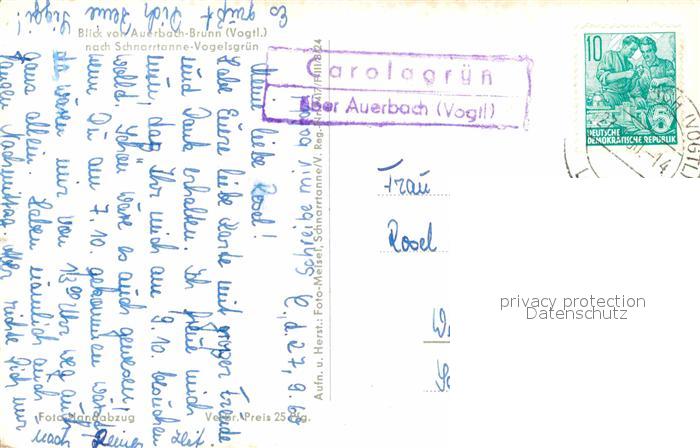 Blick von Auerbach-Brunn (Vogtl.)
nach Schnarrtanne-Vogelsgrün
Carolagrün
über Auerbach (Vogtl)
10
DEUTSCHE
DEMOKRATISCHE REPUBLIK
(VOGTL)
-14
Frau
Rosel
privacy protection
Datenschutz
C., d. 27.9.60
Schreibe mir
Meine liebe Rosel!
Habe Eure liebe Karte mit großer Freude
und Dank erhalten. Ich freue mich
sehr, daß Ihr mich am 9.10. besuchen
wollt. Schön wäre es auch gewesen,
wenn Du am 7.10. gekommen wärst,
da wären wir von 13.00 Uhr weg
ganz allein. Haben nämlich auch
langen Nachmittag. Aber richte Dich nur
nach Deiner Zeit.
Es grüßt Dich Deine
Siggi!
Aufn. u. Herst.: Foto-Meisel, Schnarrtanne/V.
Foto-Handabzug
Verbr. Preis 25 Pfg.